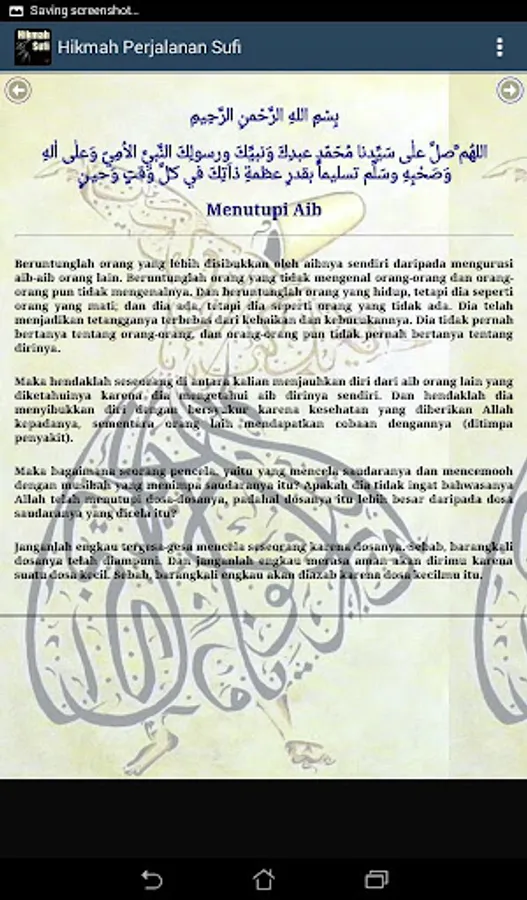 Saving screenshot...
Hikmah Sufi
Hikmah Perjalanan Sufi
بِسْمِ اللهِ الرَّحْمنِ الرَّحِيمِ
اللهُمَّ صلِّ علٰى سَيِّدِنا مُحَمَّدٍ عبدِكَ وَنبيِّكَ ورسولِكَ النَّبيِّ الأمِيّ وَعلٰى أٰلهِ
وَصَحْبِهِ وسَلِّم تسليماً بقدرِ عظمةِ ذاتِكَ في كلِّ وَقتٍ وَحينٍ
Menutupi Aib
Beruntunglah orang yang lebih disibukkan oleh aibnya sendiri daripada mengurusi
aib-aib orang lain. Beruntunglah orang yang tidak mengenal orang-orang dan orang-
orang pun tidak mengenalnya. Dan beruntunglah orang yang hidup, tetapi dia seperti
orang yang mati; dan dia ada, tetapi dia seperti orang yang tidak ada. Dia telah
menjadikan tetangganya terbebas dari kebaikan dan keburukannya. Dia tidak pernah
bertanya tentang orang-orang, dan orang-orang pun tidak pernah bertanya tentang
dirinya.
Maka hendaklah seseorang di antara kalian menjauhkan diri dari aib orang lain yang
diketahuinya karena dia mengetahui aib dirinya sendiri. Dan hendaklah dia
menyibukkan diri dengan bersyukur karena kesehatan yang diberikan Allah
kepadanya, sementara orang lain mendapatkan cobaan dengannya (ditimpa
penyakit).
Maka bagaimana seorang pencela, yaitu yang mencela saudaranya dan mencemooh
dengan musibah yang menimpa saudaranya itu? Apakah dia tidak ingat bahwasanya
Allah telah menutupi dosa-dosanya, padahal dosanya itu lebih besar daripada dosa
saudaranya yang dicela itu?
Janganlah engkau tergesa-gesa mencela seseorang karena dosanya. Sebab, barangkali
dosanya telah diampuni. Dan janganlah engkau merasa aman akan dirimu karena
suatu dosa kecil. Sebab, barangkali engkau akan diazab karena dosa kecilmu itu.